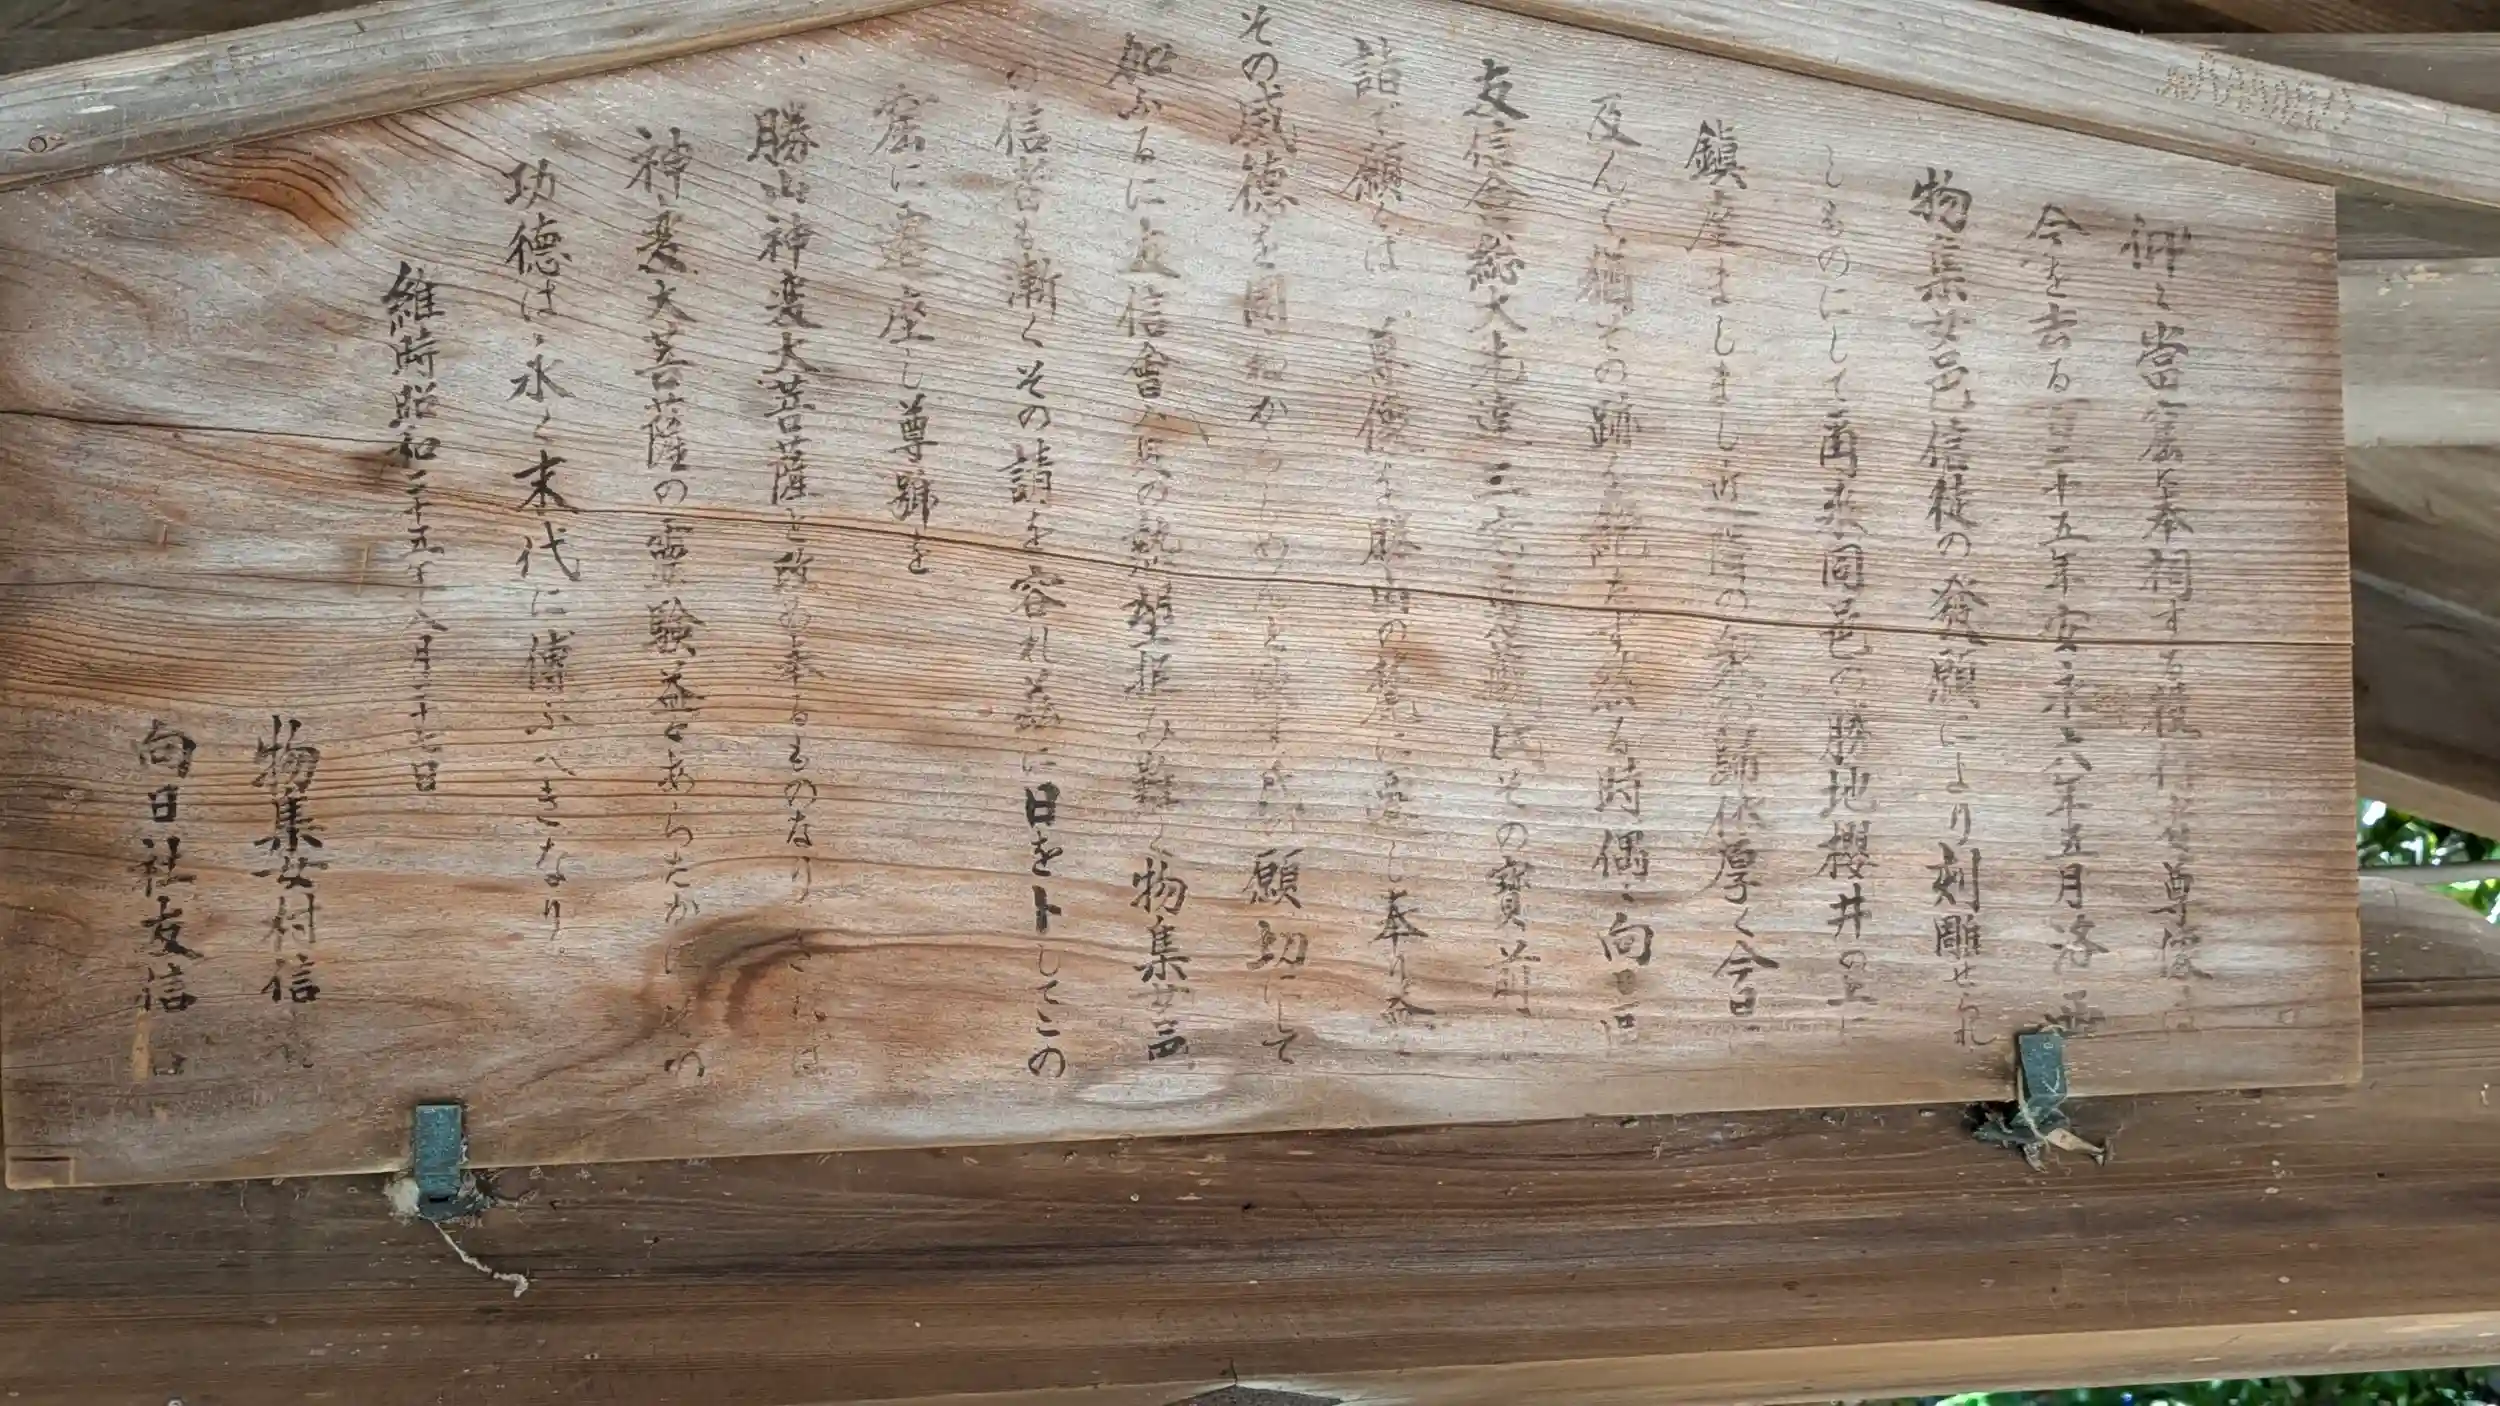 抑々當窟に奉祠する役行者尊像は
今を去る百二十五年安永八年五月洛西
物集女邑信徒の發願により刻雕せられ
しものにして爾来同邑の勝地櫻井の上に
鎮座ましまし近隣の歸依厚く今日
及んで猶その跡を絶たず然る時偶、向日
友信會総大先達三宅氏その寶前
詣で願くは尊像を勝山の麓に遷し奉り益
その威徳を願切にして
加ふるに友信會員の熱望拒み難く物集女邑
の信者も漸くその請を容れ茲に日を卜してこの
窟に遷座し尊號を
勝山神変大菩薩と改め奉るものなり
神変大菩薩の霊験益々あらたかにその
功徳は、永く末代に傳ふべきなり。
維時昭和二十五年八月二十七日
物集女村信
向日社友信